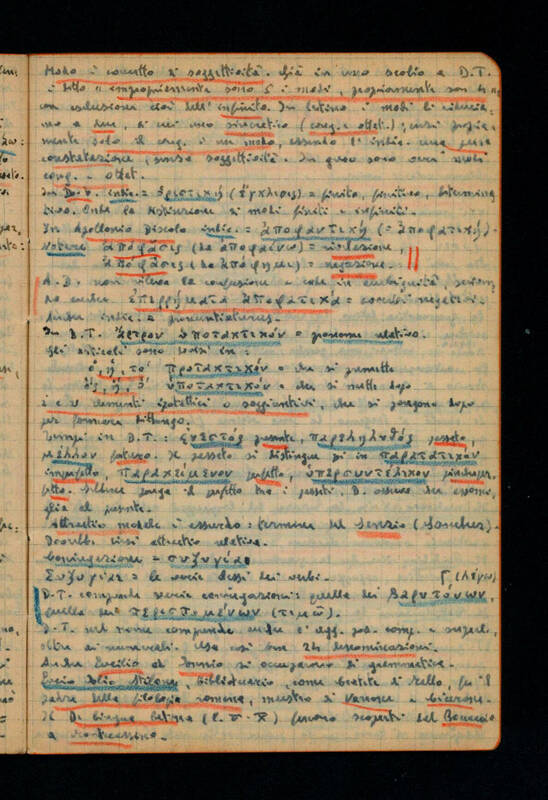 Modo è concetto di soggettività. Già in uno scolio a D.T.
è detto "impropriamente sono 5 i modi, propriamente son 4"
con esclusione cioè dell'infinito. In latino i modi li riducia-
mo a due, di cui uno sincretico (cong. e ottat.); ma propria-
mente solo il cong. è un modo, essendo l'indic. una pura
constatazione, senza soggettività. In greco sono veri modi
cong. e ottat.
In D.T. indic. = ὁριστική (ἔγκλισις) = finito, finitivo, determina
tivo. Onde la distinzione di modi finiti e infiniti.
In Apollonio Discolo indic. = ἀποφαντική (= ἀποφατική).
Notare ἀπόφασις (da ἀποφαίνω) = rivelazione,
ἀπόφασις (da ἀπόφημι) = negazione.
A.D. non rileva la confusione e cade in ambiguità, scriven
do anche ἐπιρρήματα ἀποφατικά = avverbi negativi.
Anche indic. = pronuntiativus.
In D.T. ἄρθρον ὑποτακτικόν = pronome relativo.
Gli articoli sono divisi in:
ὁ, ἡ, τό προτακτικόν = che si premette
ὅς, ἥ, ὅ ὑποτακτικόν = che si mette dopo
i e u elementi ipotattici o soggiuntivi, che si pongono dopo
per formare dittongo.
Tempi in D.T.: ἐνεστώς presente, παρεληλυθός passato,
μέλλον futuro. Il passato si distingue poi in παρατατικόν
imperfetto, παρακείμενον perfetto, ὑπερσυντέλικον piucheper
fetto. Silbene pone il perfetto tra i passati, D. osserva che assomi
glia al presente.
Attractio modale è assurdo: termine del Senzio (Sanchez).
Dovrebbe dirsi attractio relativa.
Coniugazione = συζυγία
Συζυγίαι = le varie classi dei verbi. Γ. (λέγω)
D.T. comprende varie coniugazioni: quella dei βαρυτόνων,
quella dei περισπωμένων (τιμῶ).
D.T. nel nome comprende anche l'agg. pos. comp. e superl.,
oltre ai numerali. Usa così ben 24 denominazioni.
Anche Lucilio ed Ennio si occuparono di grammatica.
Lucio Elio Stilone, bibliotecario, come Cratete di Mallo, fu il
padre della filologia romana, maestro di Varrone e Cicerone.
Il De lingua latina (l. V-X) furono scoperti dal Boccaccio
a Montecassino.